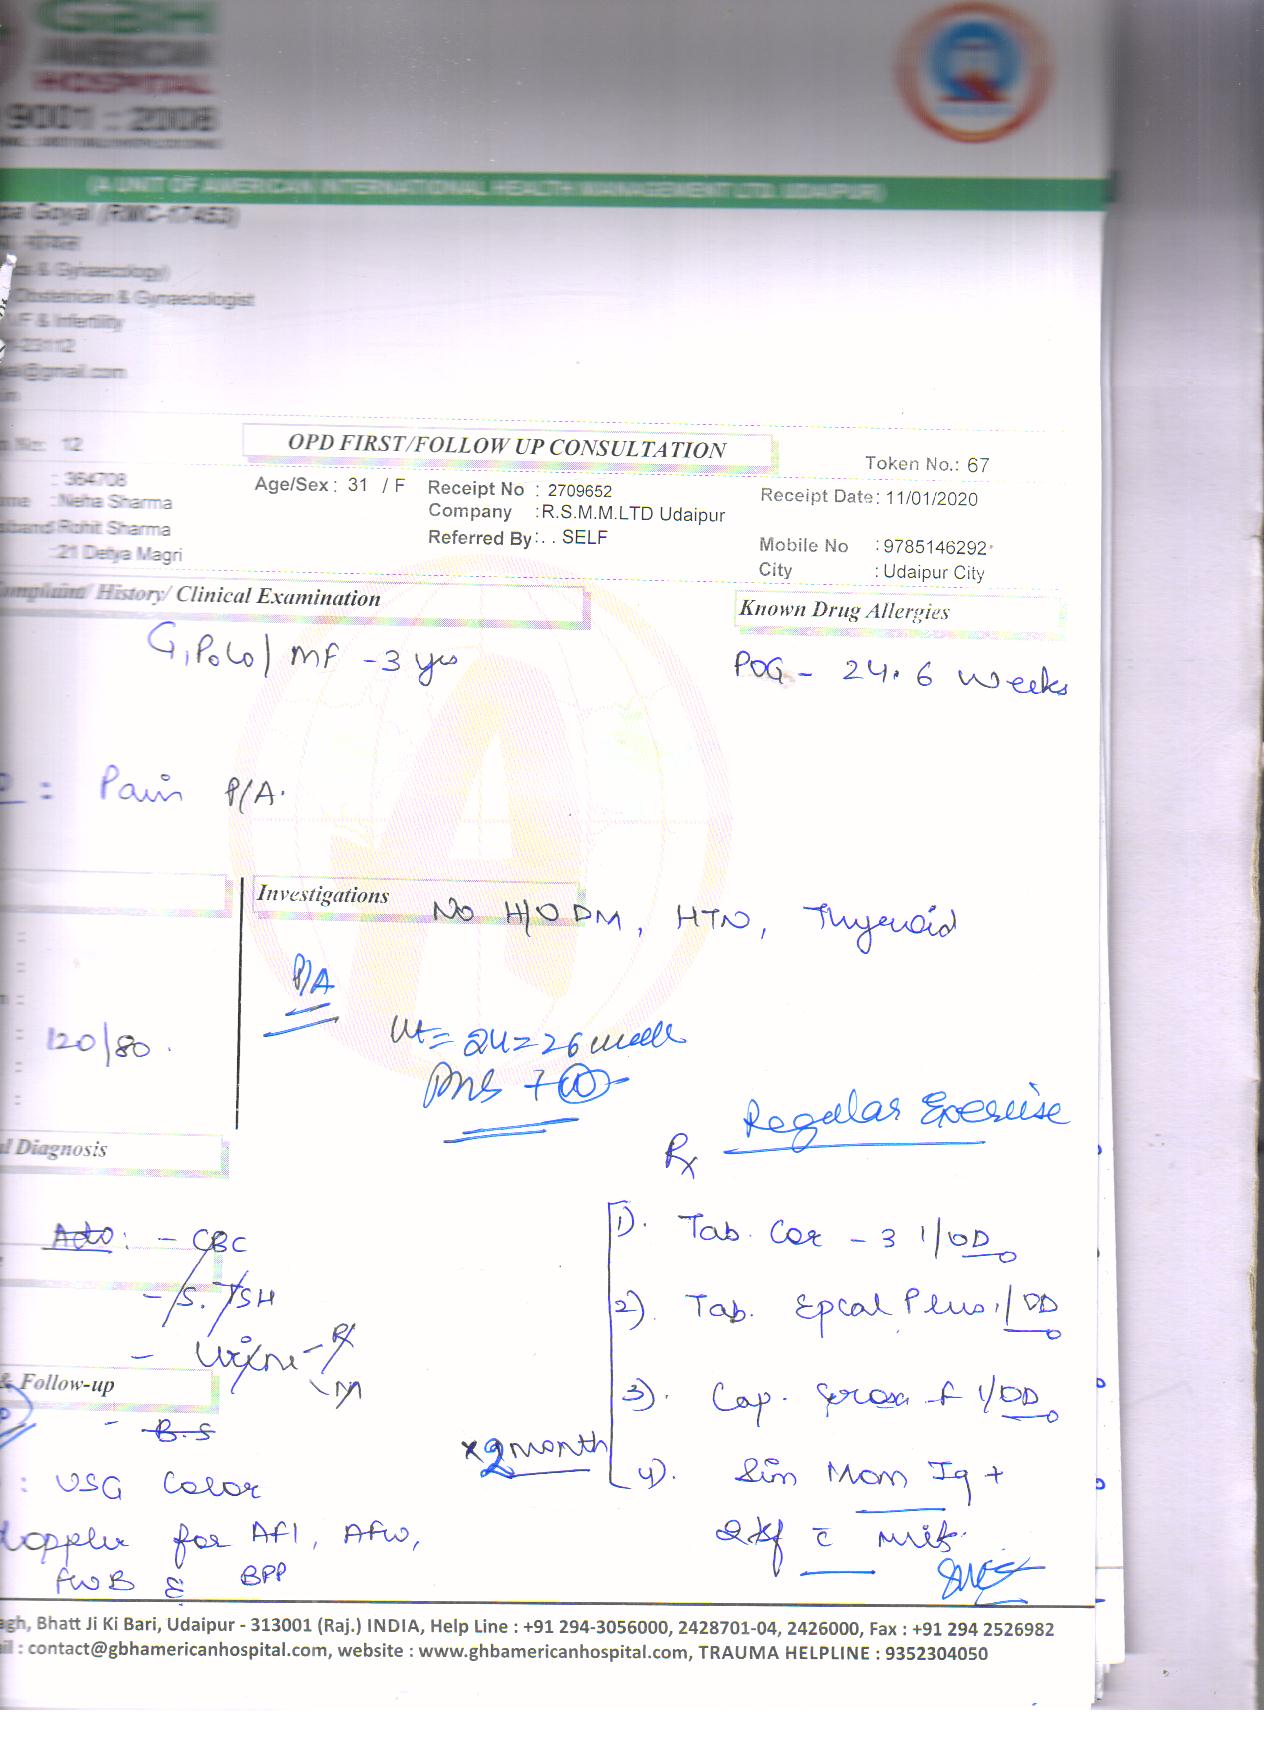 GBH
AMERICAN
HOSPITAL
9001 : 2008
(A UNIT OF AMERICAN INTERNATIONAL HEALTH MANAGEMENT LTD. UDAIPUR)
pa Goyal (RMC-17453)
गोयल
& Gynaecology)
Obstetrician & Gynaecologist
F & Infertility
-23112
@gmail.com
No: 12
OPD FIRST/FOLLOW UP CONSULTATION
Token No.: 67
: 364708
Age/Sex : 31 / F
Receipt No : 2709652
Receipt Date: 11/01/2020
me : Neha Sharma
Company : R.S.M.M.LTD Udaipur
sband Rohit Sharma
Referred By: . . SELF
Mobile No : 9785146292
: 21 Detya Magri
City : Udaipur City
Complaint/ History/ Clinical Examination
Known Drug Allergies
G1P0L0/ MF - 3 yrs
POG - 24.6 weeks
: Pain P/A.
Investigations
No H/O DM, HTN, Thyroid
P/A
120/80.
Ut = 24-26 week
Regular Exercise
Rx
al Diagnosis
Adv: - CBC
- S. TSH
- Urine - R
M
& Follow-up
- B.S
1). Tab. Cor - 3 1/OD
2). Tab. Epcal Plus 1/OD
3). Cap. f 1/OD
x 2 month
4). Mom
: USG Color
doppler for AFI, AFW,
FWB & BPP
agh, Bhatt Ji Ki Bari, Udaipur - 313001 (Raj.) INDIA, Help Line : +91 294-3056000, 2428701-04, 2426000, Fax : +91 294 2526982
il : contact@gbhamericanhospital.com, website : www.ghbamericanhospital.com, TRAUMA HELPLINE : 9352304050